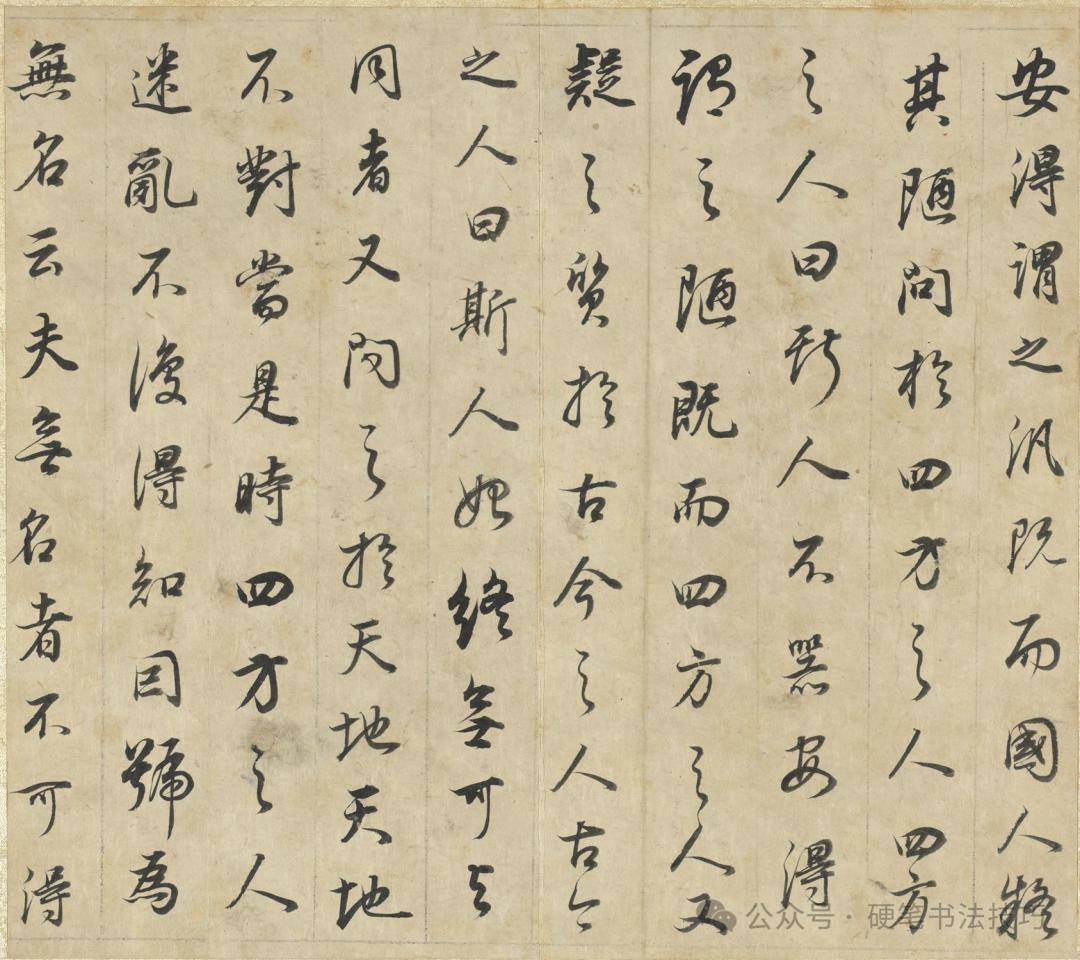 安得謂之汎既而國人疑
其陋問於四方之人四方
之人曰斯人不器安得
謂之陋既而四方之人又
疑之質於古今之人古今
之人曰斯人始終無可與
同者又問之於天地天地
不對當是時四方之人
迷亂不復得知因號為
無名云夫無名者不可得
公众号·硬笔书法技巧